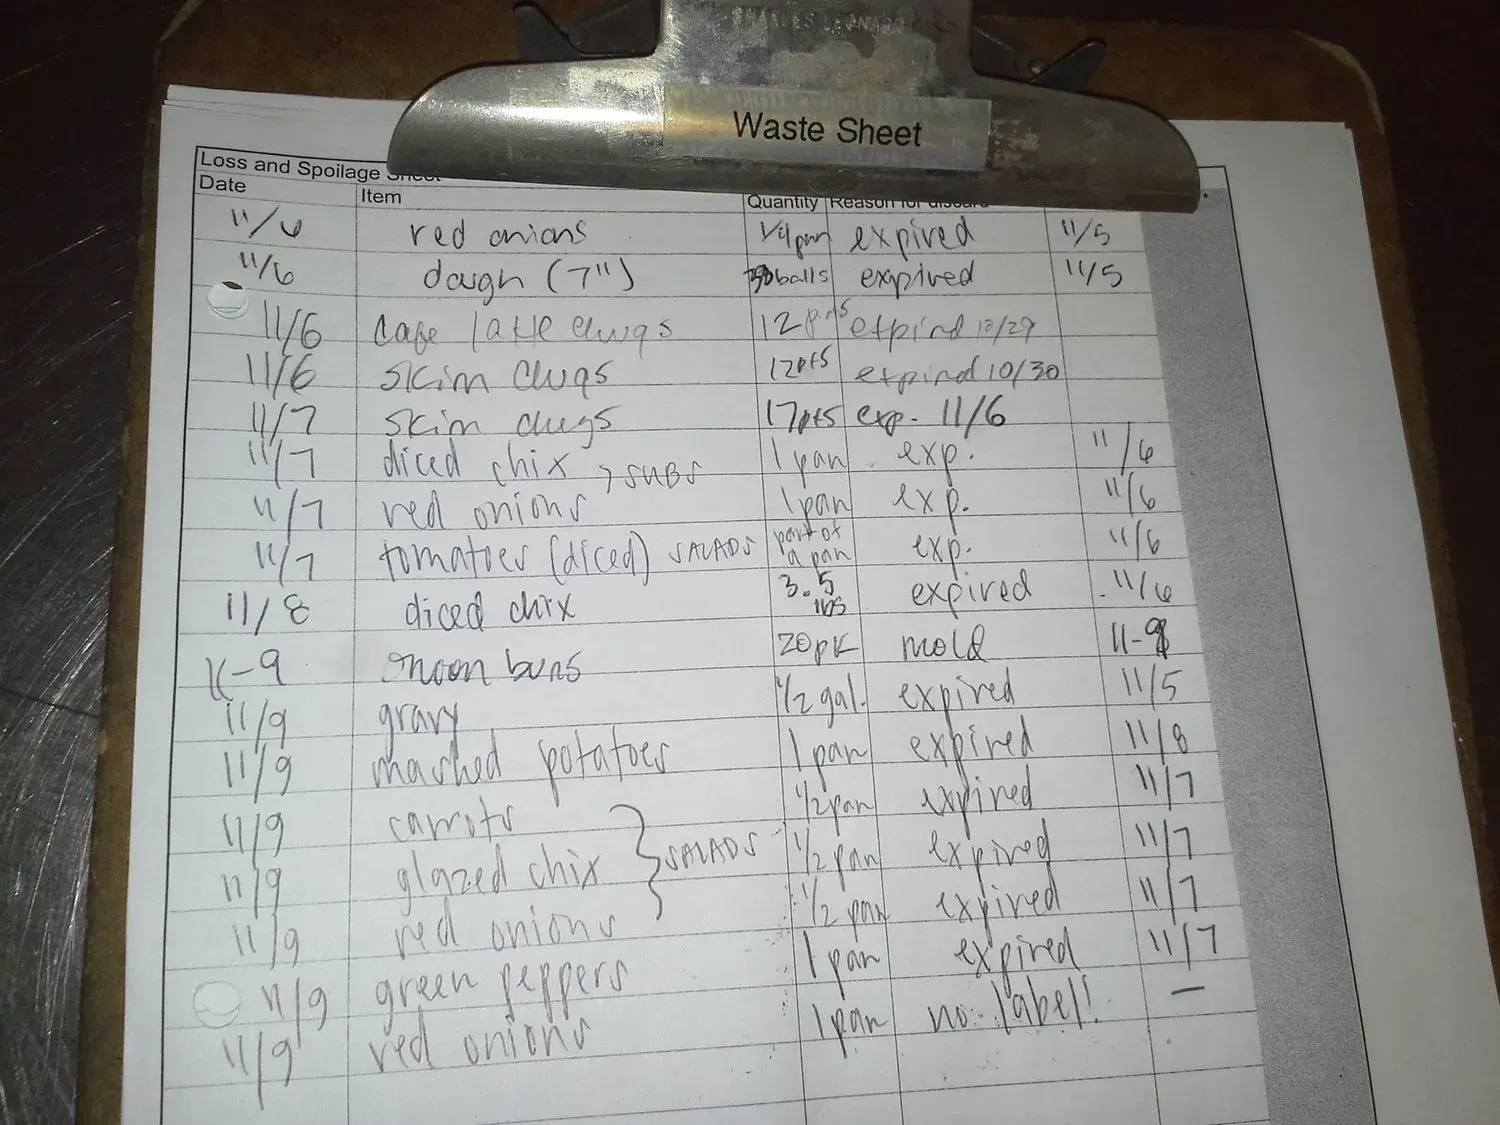 CHARLES LEONARD
Waste Sheet
Loss and Spoilage Sheet
Date Item Quantity Reason for discard
11/6 red onions 1/4 pan expired 11/5
11/6 dough (7") balls expired 11/5
11/6 cafe latte chugs 12 pnts expired 10/29
11/6 skim chugs 12pts expired 10/30
11/7 skim chugs 17pts exp. 11/6
11/7 diced chix , SUBS 1 pan exp. 11/6
11/7 red onions 1 pan exp. 11/6
11/7 tomatoes (diced) SALADS part of a pan exp. 11/6
11/8 diced chix 3.5 lbs expired 11/6
11-9 onion buns 20 pk mold 11-9
11/9 gravy 1/2 gal. expired 11/5
11/9 mashed potatoes 1 pan expired 11/8
11/9 carrots 1/2 pan expired 11/7
11/9 glazed chix } SALADS 1/2 pan expired 11/7
11/9 red onions 1/2 pan expired 11/7
11/9 green peppers 1 pan expired 11/7
11/9 red onions 1 pan no label! —